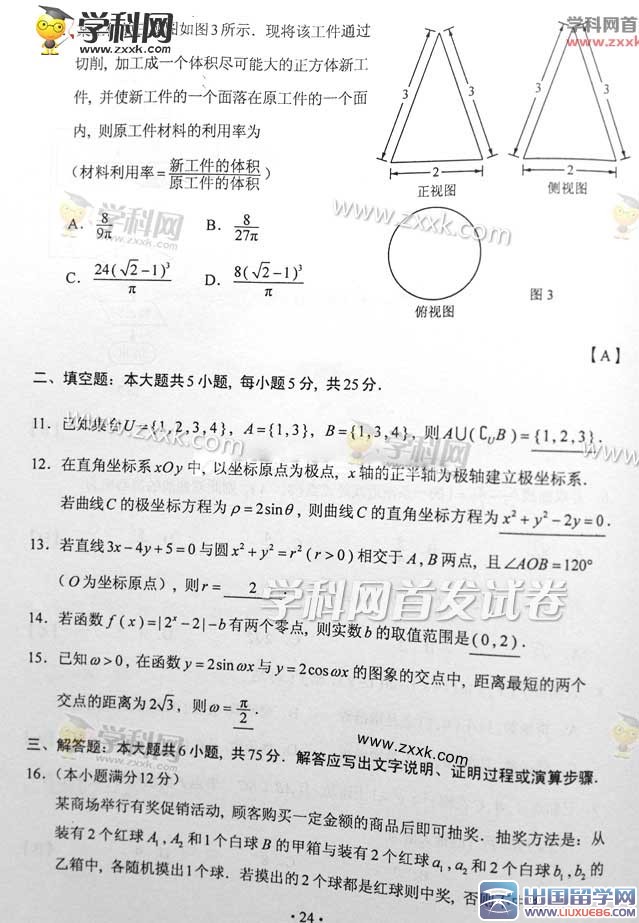 学科网
www.zxxk.com
学科网首
www.zxxk.com
图如图3所示．现将该工件通过
切削, 加工成一个体积尽可能大的正方体新工
件, 并使新工件的一个面落在原工件的一个面
内, 则原工件材料的利用率为
（材料利用率=新工件的体积/原工件的体积）
3
3
2
正视图
3
3
2
侧视图
俯视图
图 3
学科网
www.zxxk.com
www.zxxk.com
A. 8/9π
B. 8/27π
C. 24(√2-1)³/π
D. 8(√2-1)³/π
【A】
二、填空题：本大题共5小题, 每小题5分, 共25分．
11．已知集合U={1,2,3,4}, A={1,3}, B={1,3,4}, 则A∪(∁UB)={1,2,3}．
www.zxxk.com
学科网
12．在直角坐标系xOy中, 以坐标原点为极点, x轴的正半轴为极轴建立极坐标系．
若曲线C的极坐标方程为ρ=2sinθ, 则曲线C的直角坐标方程为x²+y²-2y=0．
13．若直线3x-4y+5=0与圆x²+y²=r²(r>0)相交于A,B两点, 且∠AOB=120°
（O为坐标原点）, 则r= 2 ．
学科网首发试卷
14．若函数f(x)=|2ˣ-2|-b有两个零点, 则实数b的取值范围是(0,2)．
15．已知ω>0, 在函数y=2sinωx与y=2cosωx的图象的交点中, 距离最短的两个
交点的距离为2√3, 则ω=π/2．
学科网
www.zxxk.com
www.zxxk.com
三、解答题：本大题共6小题, 共75分．解答应写出文字说明、证明过程或演算步骤．
16．（本小题满分12分）
某商场举行有奖促销活动, 顾客购买一定金额的商品后即可抽奖．抽奖方法是：从
装有2个红球A₁,A₂和1个白球B的甲箱与装有2个红球a₁,a₂和2个白球b₁,b₂的
乙箱中, 各随机摸出1个球．若摸出的2个球都是红球则中奖, 否则
· 24 ·
出国留学网
www.liuxue86.com